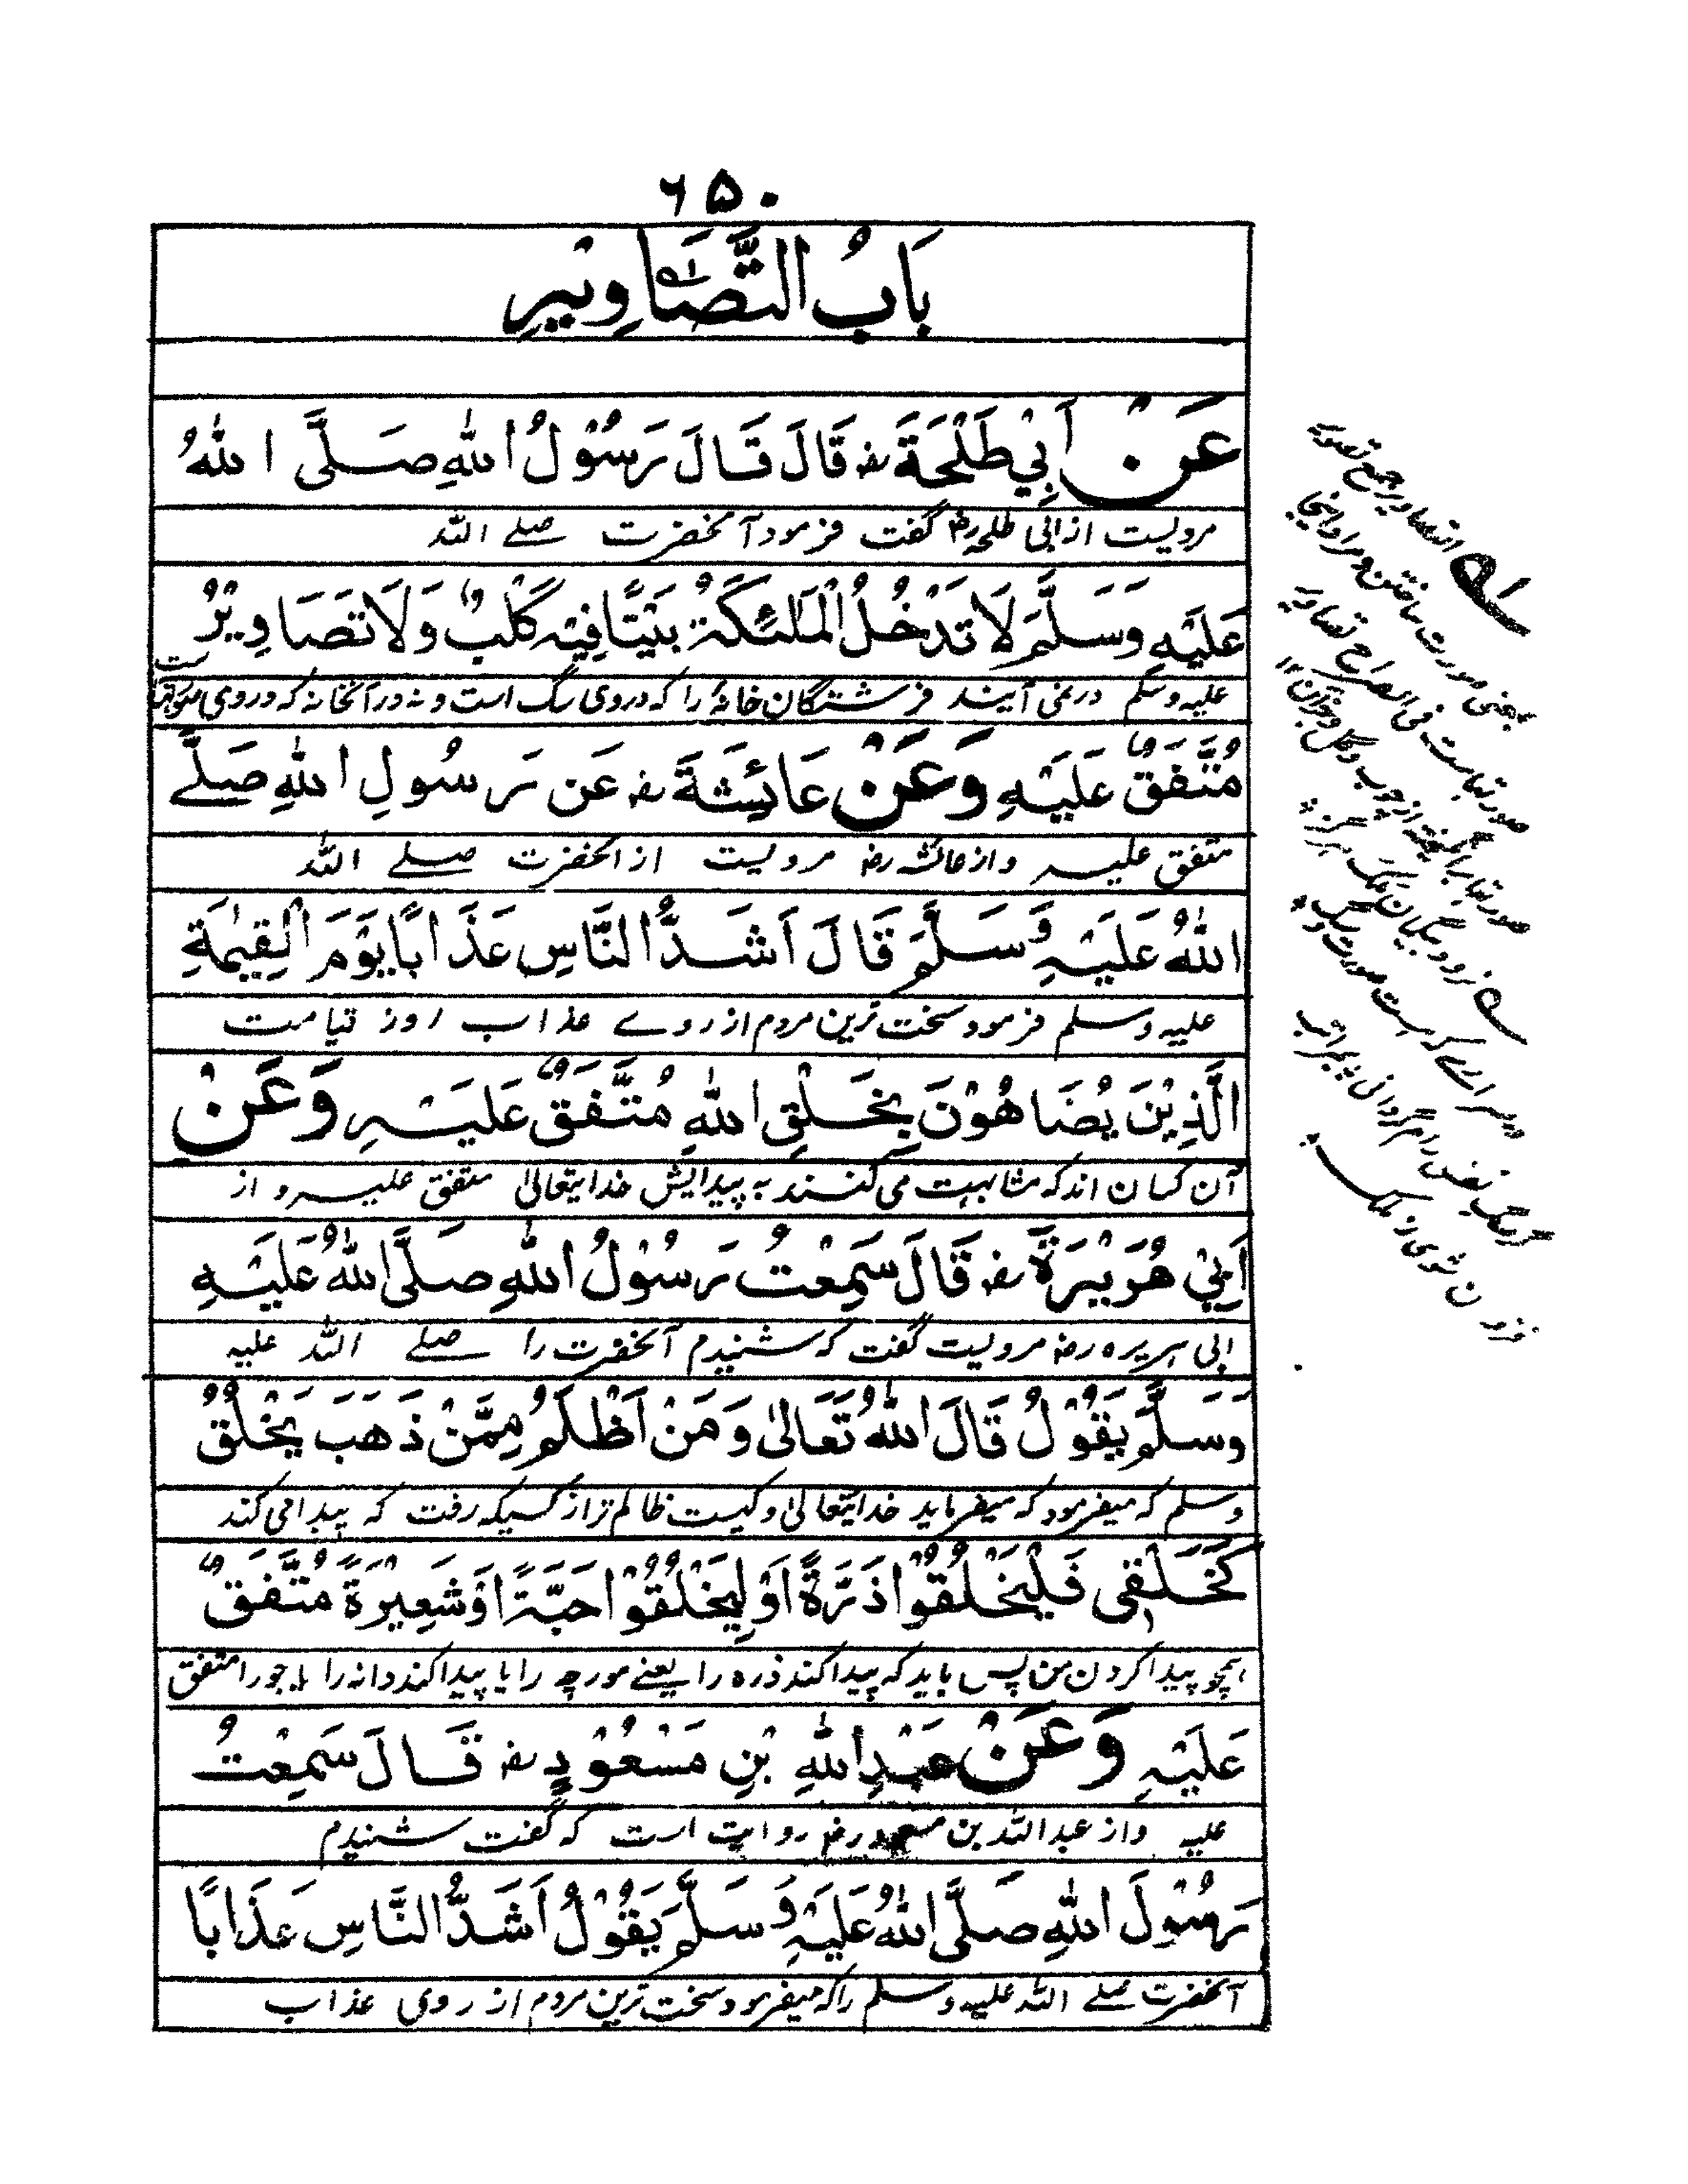 ۶۵۰
بَابُ التَّصَاوِيْرِ
عَنْ اَبِيْ طَلْحَةَ رض قَالَ قَالَ رَسُوْلُ اللهِ صَلَّى اللهُ
مرویست از ابی طلحه رض گفت فرمود آنحضرت صلے اللہ
عَلَيْهِ وَسَلَّمَ لَا تَدْخُلُ الْمَلٰئِكَةُ بَيْتًا فِيْهِ كَلْبٌ وَلَا تَصَاوِيْرُ
علیه وسلم در نمی آیند فرشتگان خانهٔ را که دروی سگ است و نه در آنخانه که دروی
مُتَّفَقٌ عَلَيْهِ وَعَنْ عَائِشَةَ رض عَن رَسُولِ اللهِ صَلَّے
متفق علیه و از عائشه رض مرویست از آنحضرت صلے اللہ
اللهُ عَلَيْهِ وَسَلَّمَ قَالَ اَشَدُّ النَّاسِ عَذَابًا يَوْمَ الْقِيٰمَةِ
علیه وسلم فرمود سخت ترین مردم از روے عذاب روز قیامت
الَّذِيْنَ يُضَاهُوْنَ بِخَلْقِ اللهِ مُتَّفَقٌ عَلَيْهِ وَعَنْ
آن کسان اند که مشابهت می کنند به پیدایش خدایتعالیٰ متفق علیه و از
اَبِيْ هُرَيْرَةَ رض قَالَ سَمِعْتُ رَسُوْلُ اللهِ صَلَّى اللهُ عَلَيْهِ
ابی هریره رض مرویست گفت که شنیدم آنحضرت را صلے اللہ علیه
وَسَلَّمَ يَقُوْلُ قَالَ اللهُ تَعَالىٰ وَمَنْ اَظْلَمُ مِمَّنْ ذَهَبَ يَخْلُقُ
وسلم که میفرمود که میفرماید خدایتعالیٰ و کیست ظالم تر از کسیکه رفت که پیدا می کند
كَخَلْقِي فَلْيَخْلُقُوْا ذَرَّةً اَوْ لِيَخْلُقُوْا حَبَّةً اَوْ شَعِيْرَةً مُتَّفَقٌ
همچو پیدا کردن من پس باید که پیدا کند ذره را یعنے مورچه را یا پیدا کند دانه را یا جو را متفق
عَلَيْهِ وَعَنْ عَبْدِ اللهِ بْنِ مَسْعُوْدٍ رض قَالَ سَمِعْتُ
علیه و از عبد اللہ بن مسعود رض روایت است که گفت شنیدم
رَسُوْلَ اللهِ صَلَّى اللهُ عَلَيْهِ وَسَلَّمَ يَقُوْلُ اَشَدُّ النَّاسِ عَذَابًا
آنحضرت صلے اللہ علیه وسلم را که میفرمود سخت ترین مردم از روی عذاب
التصاویر جمع تصویر
بمعنی صورت ساختن و مراد اینجا
صورتهاست فی الصراح تصاویر